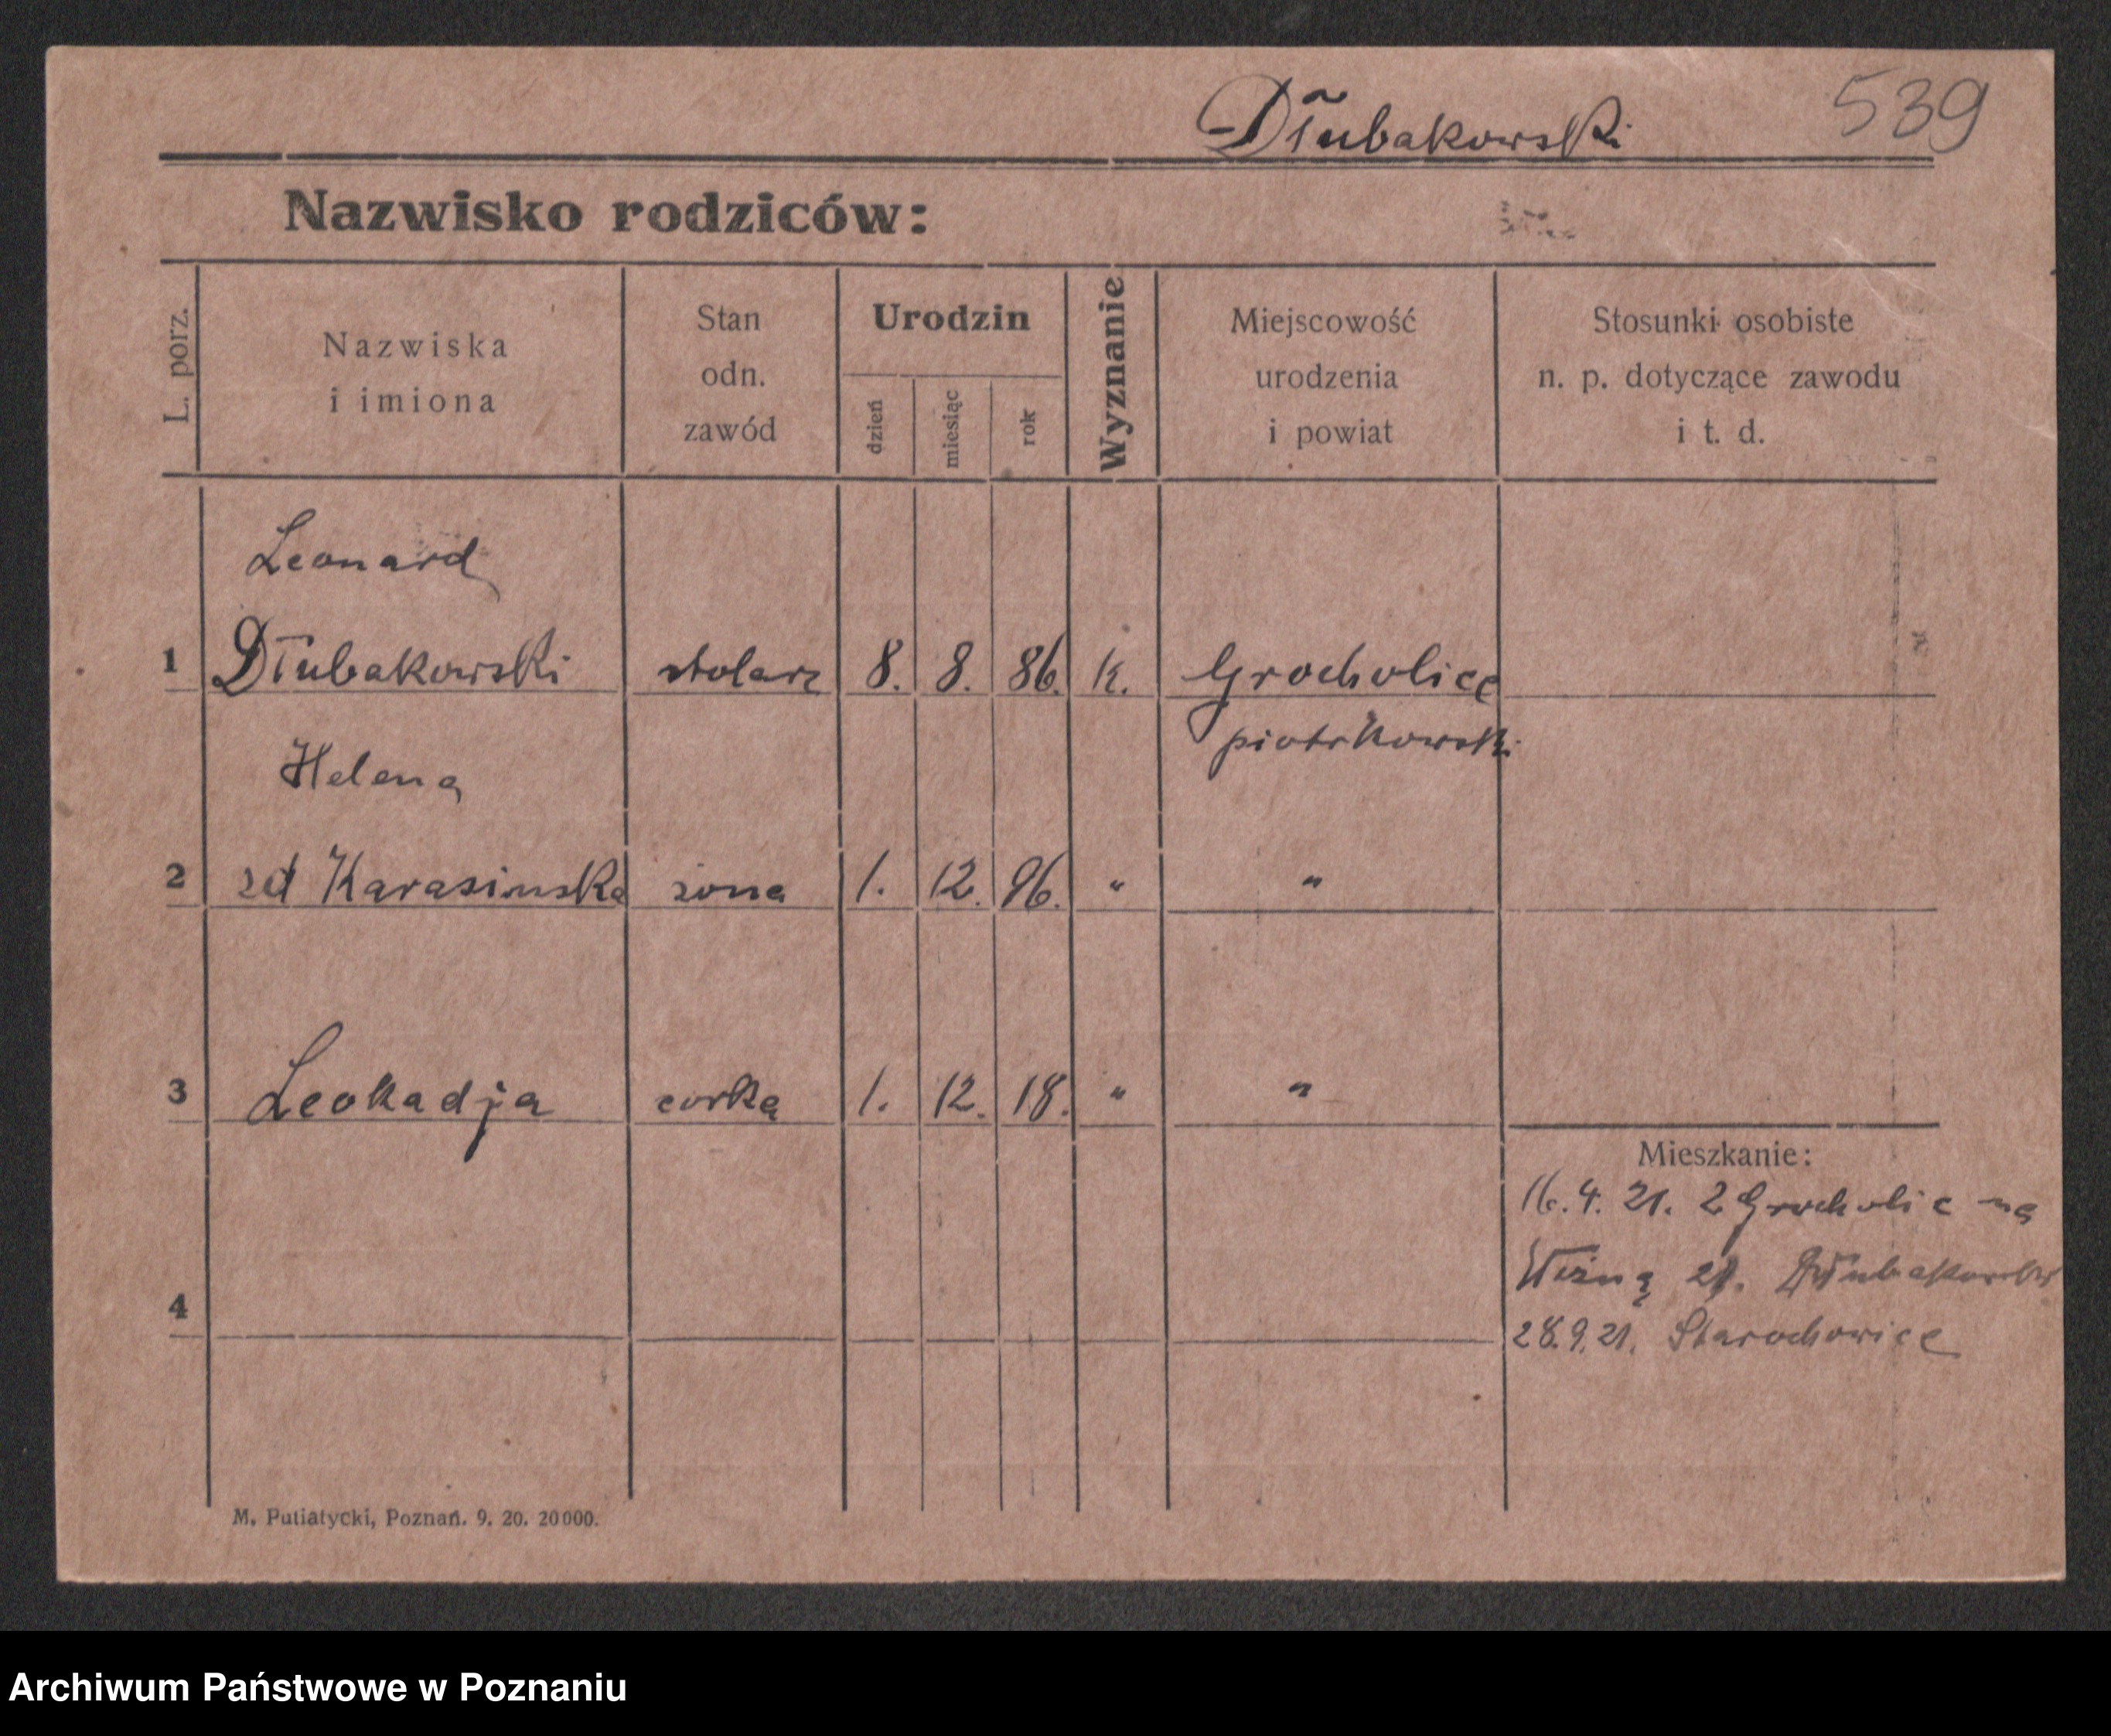 Dłubakowski 539
Nazwisko rodziców:
L. porz.
Nazwiska
i imiona
Stan
odn.
zawód
Urodzin
dzień
miesiąc
rok
Wyznanie
Miejscowość
urodzenia
i powiat
Stosunki osobiste
n. p. dotyczące zawodu
i t. d.
Leonard
1 Dłubakowski stolarz 8. 8. 86. k. Grocholice
piotrkowski
Helena
2 zd Karasinska żona 1. 12. 96. " "
3 Leokadja corka 1. 12. 18. " "
Mieszkanie:
16. 4. 21. z Grocholic na
21. Dłubakowski
4
28.9.21. Starochowice
M. Putiatycki, Poznań. 9. 20. 20000.
Archiwum Państwowe w Poznaniu